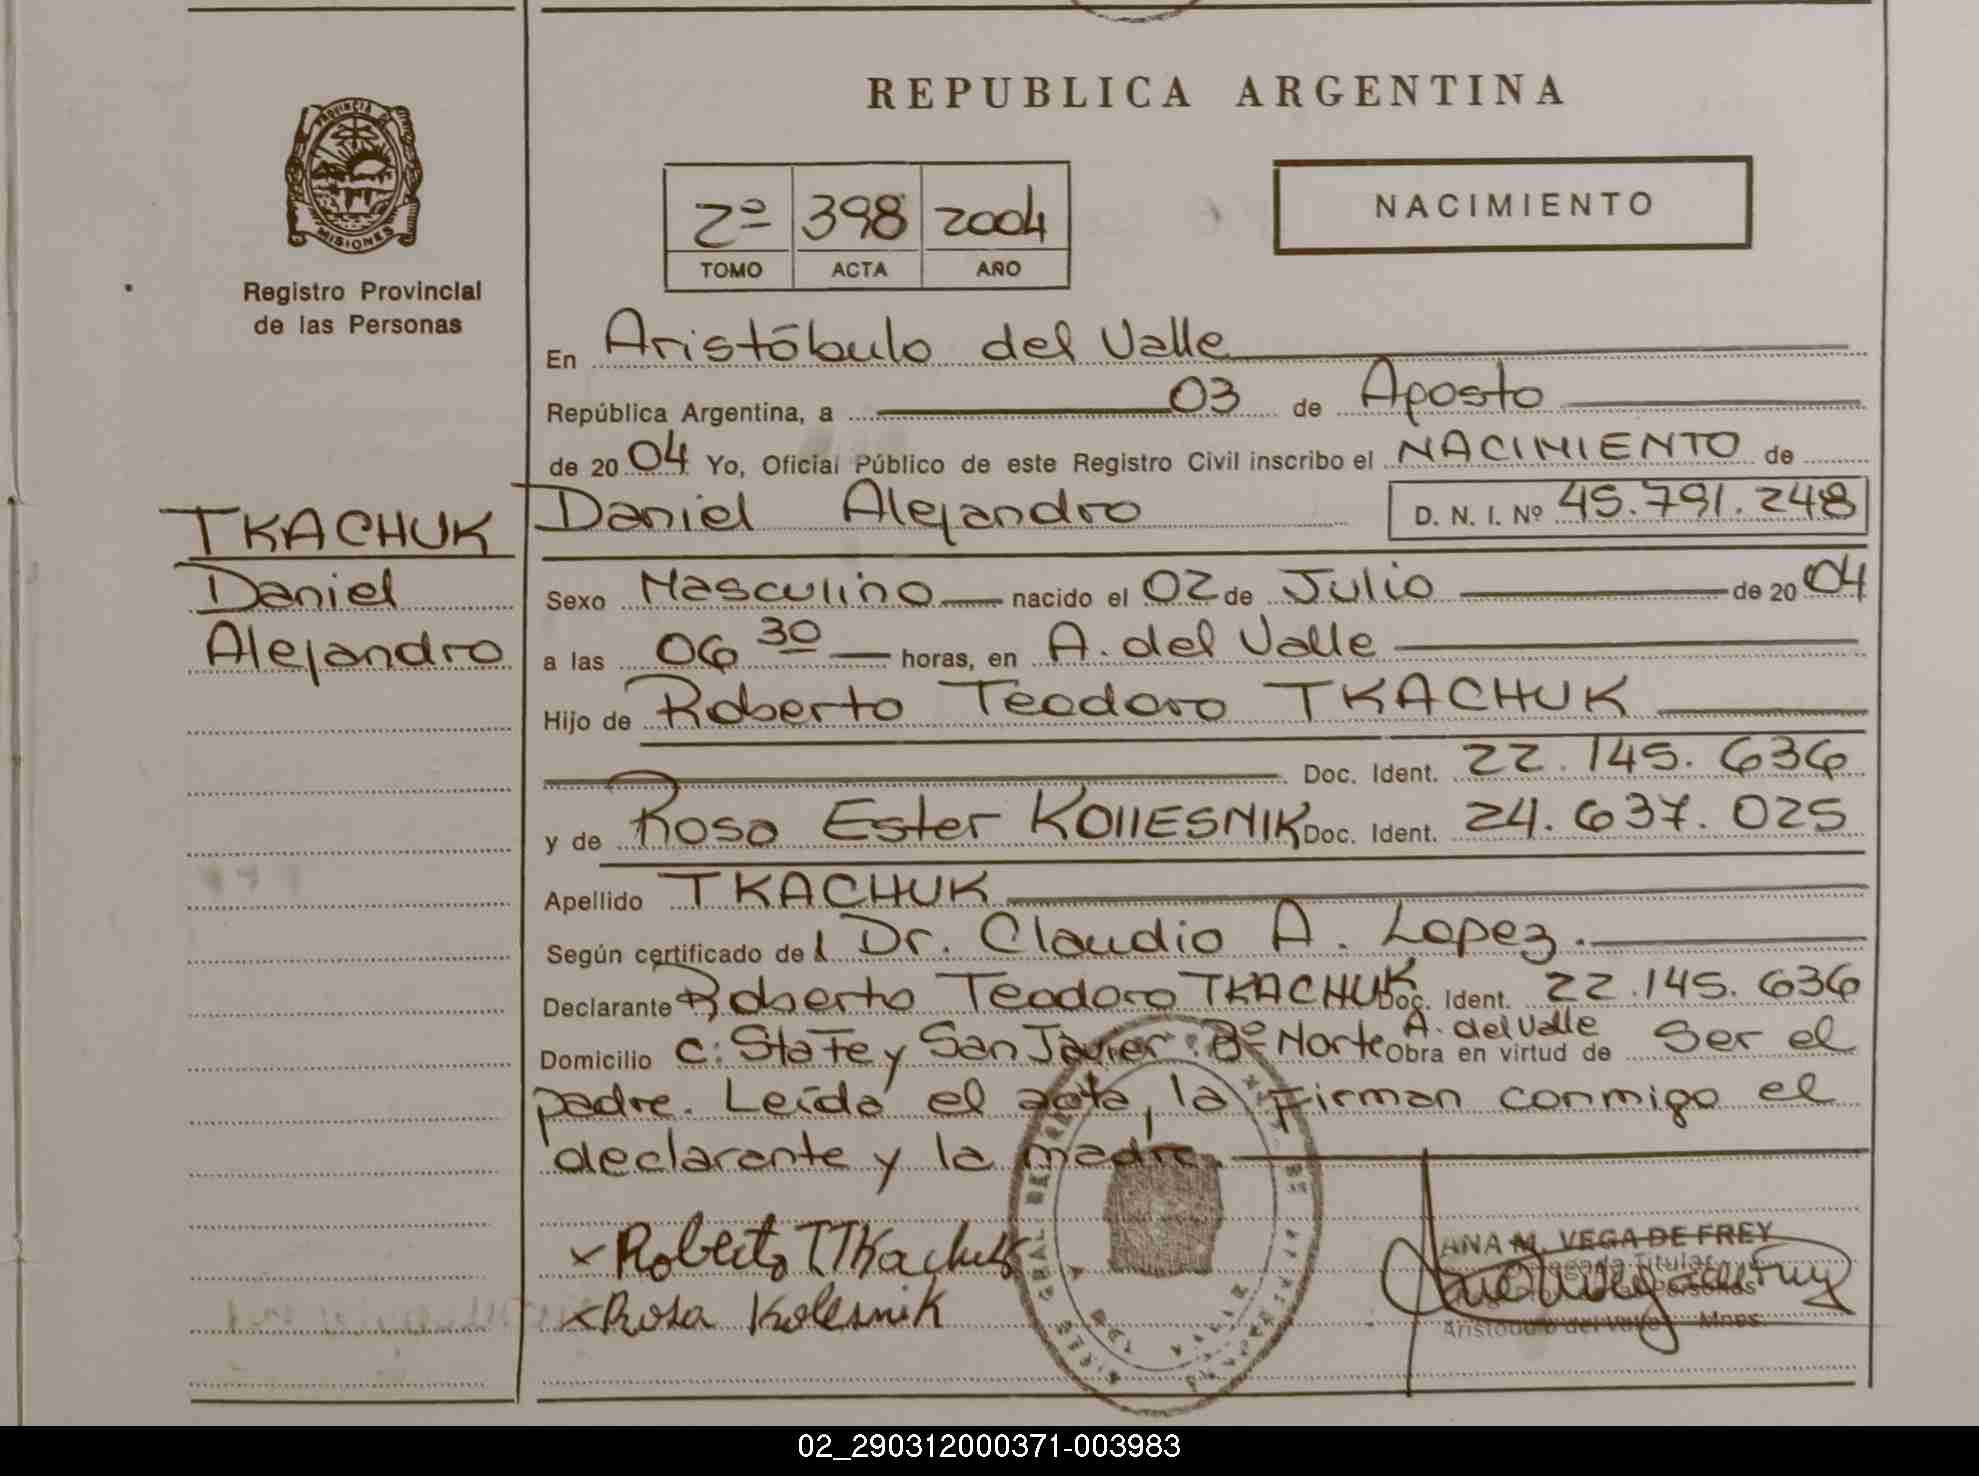 REPUBLICA ARGENTINA
PROVINCIA DE
MISIONES
Registro Provincial
de las Personas
2º 398 2004
TOMO ACTA AÑO
NACIMIENTO
En Aristóbulo del Valle
República Argentina, a 03 de Agosto
de 2004 Yo, Oficial Público de este Registro Civil inscribo el NACIMIENTO de
TKACHUK
Daniel
Alejandro
Daniel Alejandro D. N. I. Nº 45.791.248
Sexo Masculino nacido el 02 de Julio de 2004
a las 06 30 horas, en A. del Valle
Hijo de Roberto Teodoro TKACHUK
Doc. Ident. 22.145.636
y de Rosa Ester KOllESNIK Doc. Ident. 24.637.025
Apellido TKACHUK
Según certificado del Dr. Claudio A. Lopez.
Declarante Roberto Teodoro TKACHUK Doc. Ident. 22.145.636
Domicilio c: Sta Fe y San Javier Bº Norte A. del Valle Obra en virtud de Ser el
padre. Leída el acta, la Firman conmigo el
declarante y la madre.
x Roberto T Tkachuk
x Rosa Kolesnik
ANA M. VEGA DE FREY
Titular
Personas
Aristóbulo del Valle Mnes.
02_290312000371-003983